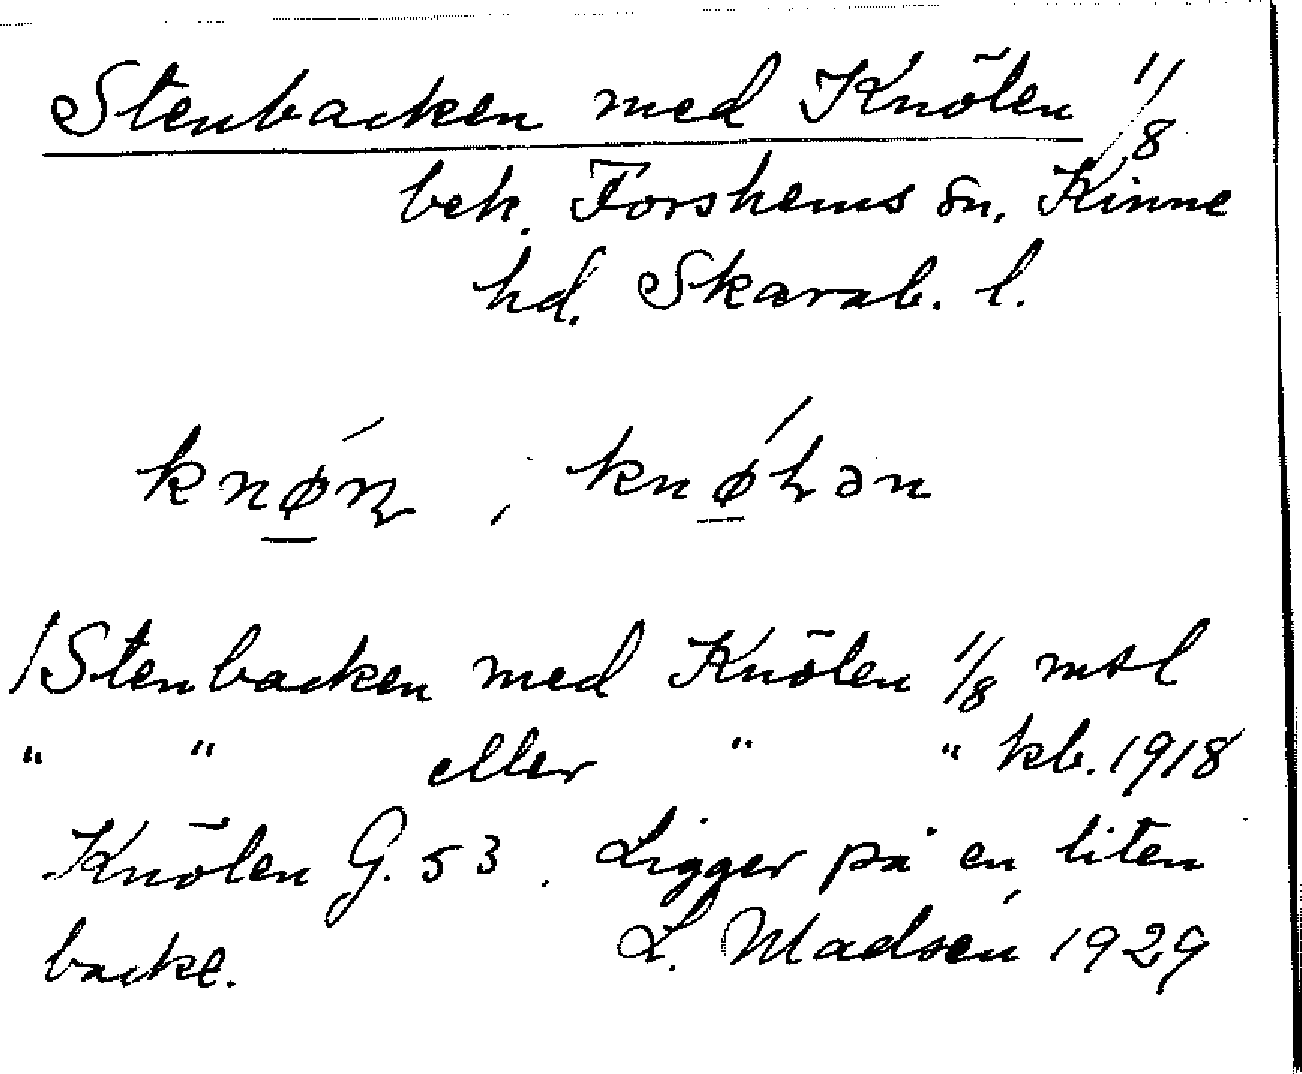 Stenbacken med Knölen 1/8
beh. Forshems sn, Kinne
hd. Skarab. l.
knøn, knøhən
/Stenbacken med Knölen 1/8 mtl
" " eller " " kb. 1918
Knölen G. 53. Ligger på en liten
backe. L. Madsén 1929